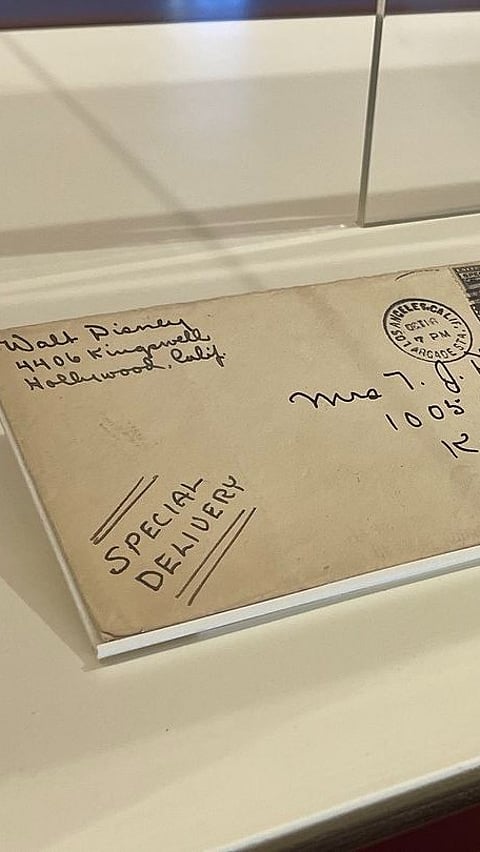 Walt Disney
4406 Kingswell
Hollywood, Calif.
LOS ANGELES, CALIF.
OCT 16
7 PM
ARCADE STA.
Mrs T. J.
1005
K
SPECIAL
DELIVERY